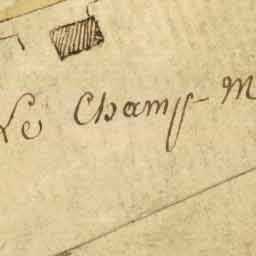 Le Champ- M